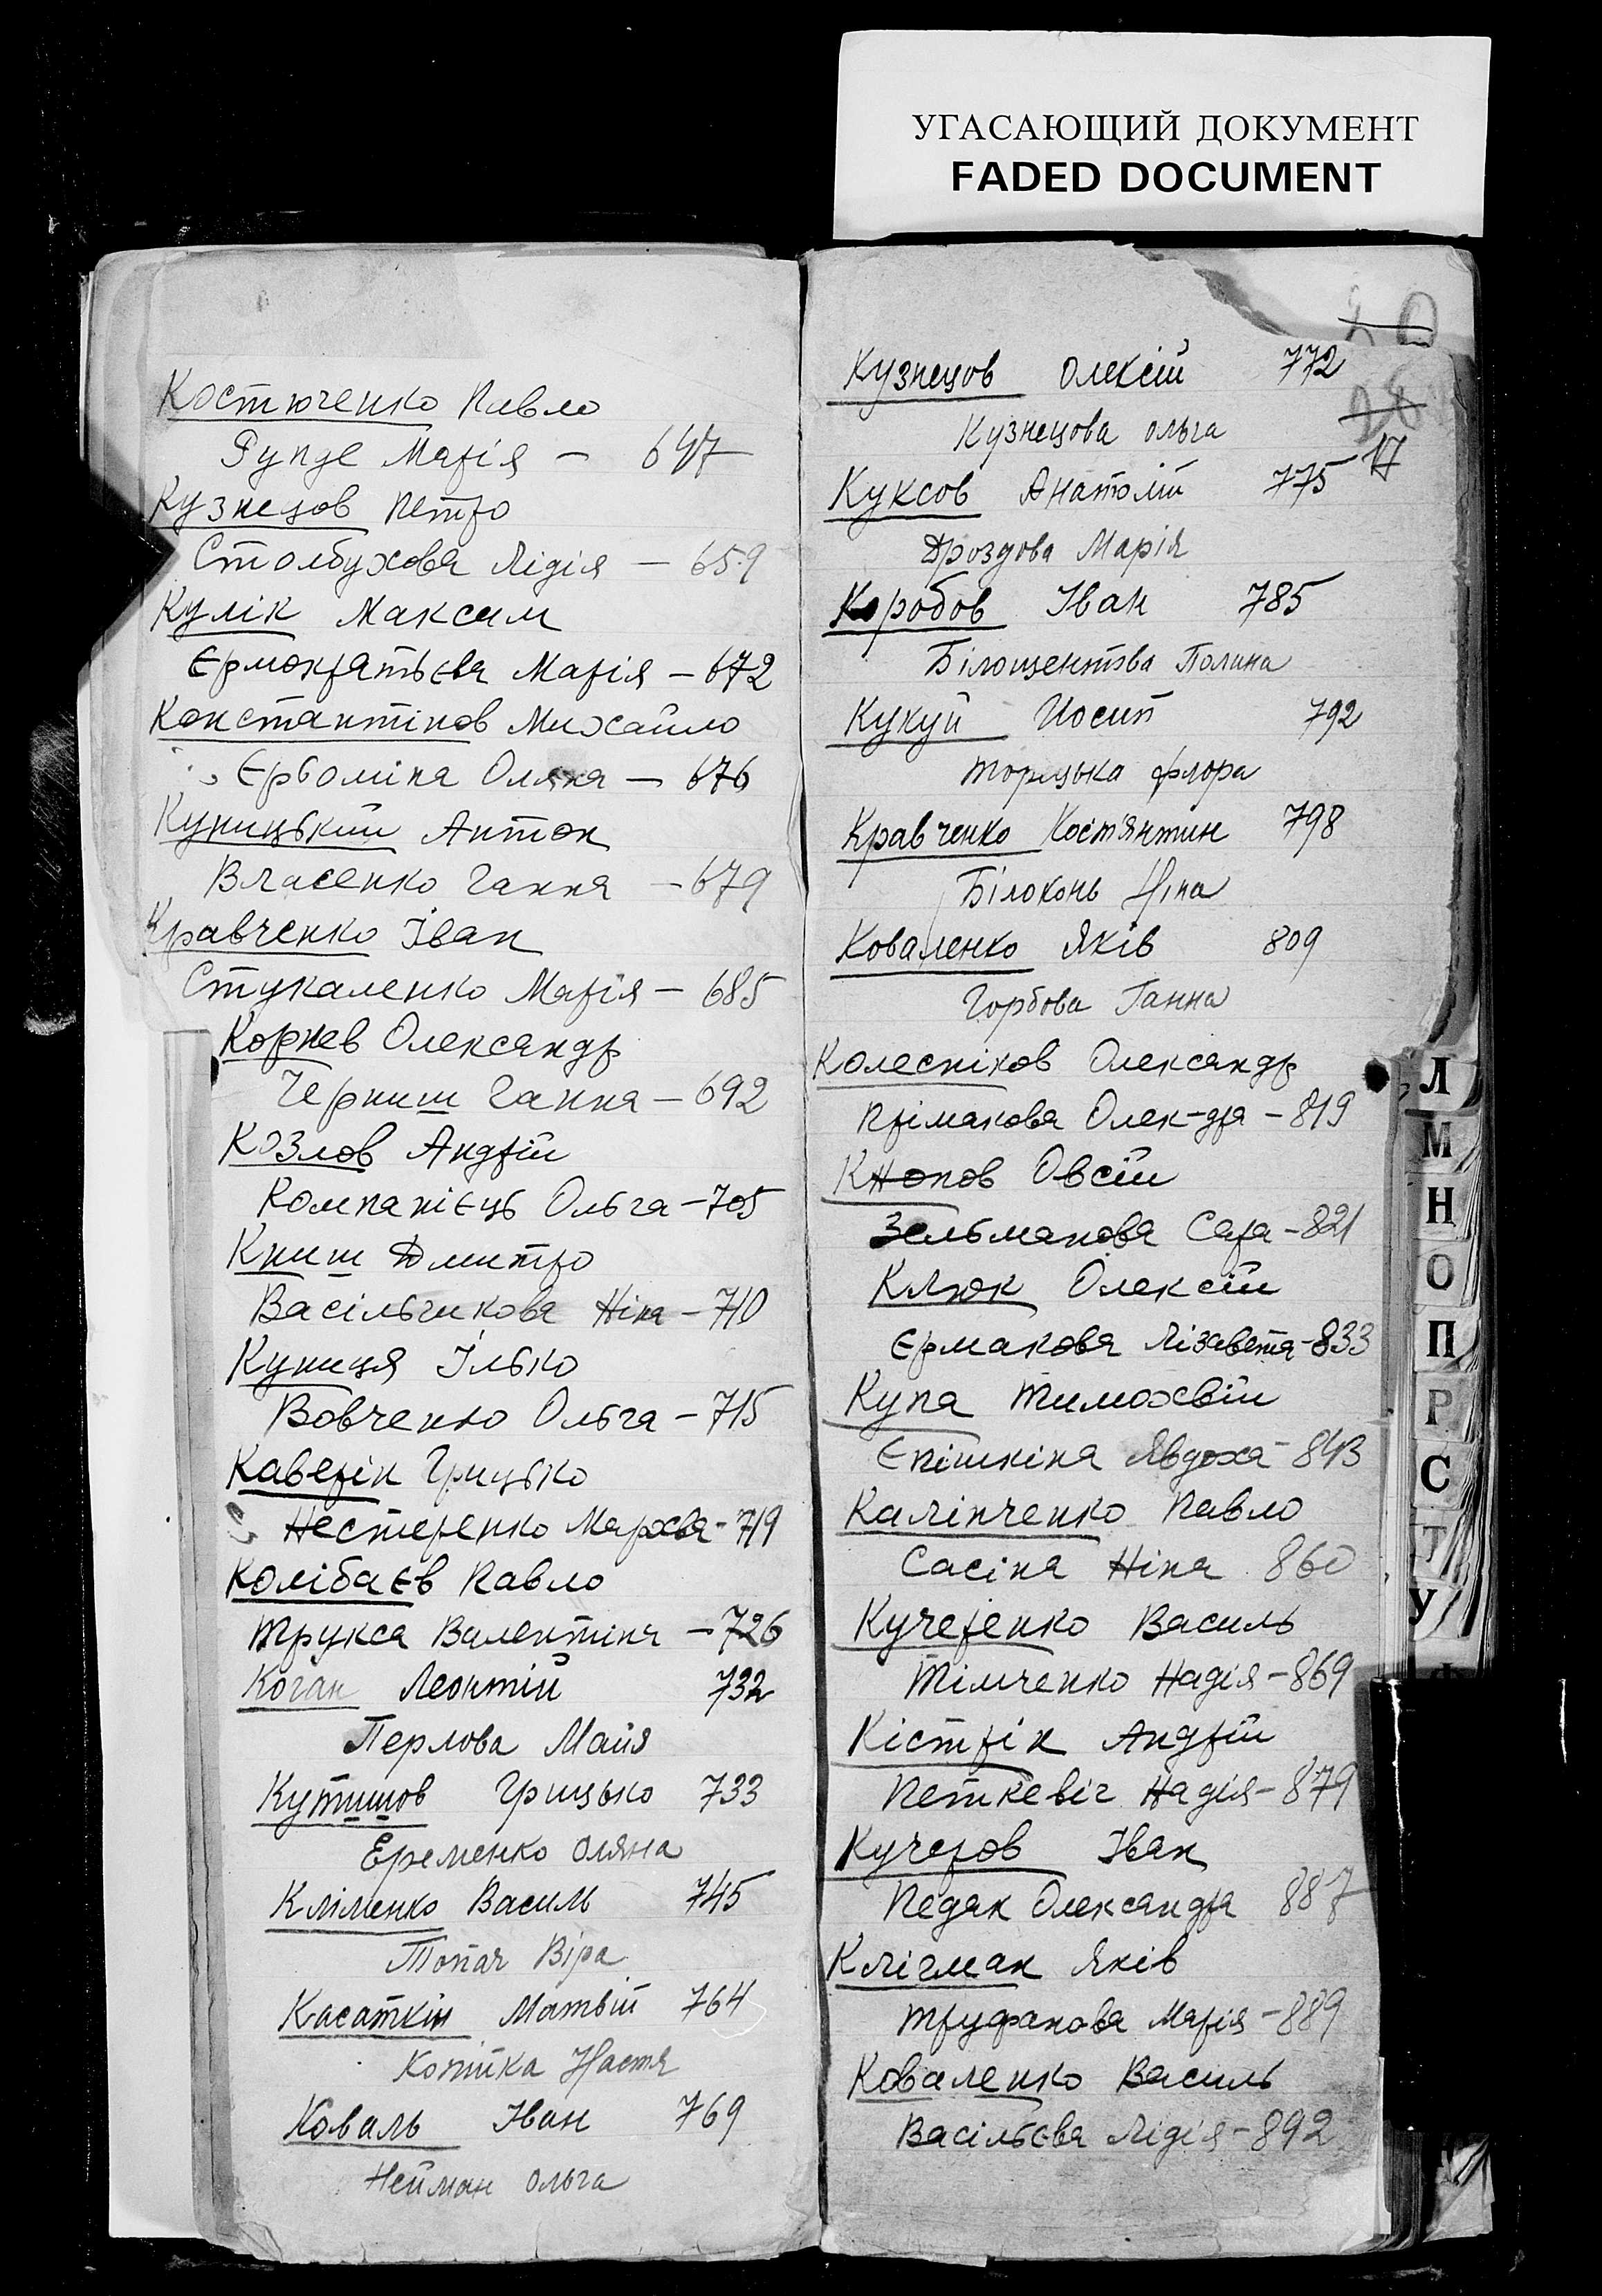 УГАСАЮЩИЙ ДОКУМЕНТ
FADED DOCUMENT
Костюченко Павло
Рунде Марія — 647
Кузнецов Петро
Столбухова Лідія — 659
Кулік Максим
Єрмократьєва Марія — 672
Константінов Михайло
Єрьоміна Оляна — 676
Куницький Антон
Власенко Ганна — 679
Кравченко Іван
Стукаленко Марія — 685
Корнев Олександр
Черниш Ганна — 692
Козлов Андрій
Компанієць Ольга — 705
Книш Дмитро
Васільчикова Ніна — 710
Куниця Ілько
Вовченко Ольга — 715
Каверін Грицько
Нестеренко Марфа - 719
Колібаєв Павло
Трукса Валентіна — 726
Коган Леонтій 732
Перлова Майя
Кутишов Грицько 733
Еременко Оляна
Кліменко Василь 745
Топач Віра
Касаткін Матвій 764
Копійка Настя
Коваль Іван 769
Нейман Ольга
20
17
Кузнецов Олексій 772
Кузнецова Ольга
Куксов Анатолій 775
Дроздова Марія
Коробов Іван 785
Білошентова Полина
Кукуй Йосип 792
Торицька Флора
Кравченко Костянтин 798
Білоконь Ніна
Коваленко Яків 809
Горбова Ганна
Колесніков Олександр
Прімакова Олек-дра - 819
Кнопов Овсій
Зельманова Сара - 821
Клюк Олексій
Єрмакова Лізавета - 833
Купа Тимохвій
Єпішкіна Явдоха - 843
Калінченко Павло
Сасіна Ніна 860
Кучеренко Василь
Тімченко Надія - 869
Кістрін Андрій
Петкевіч Надія - 879
Кучеров Іван
Педак Олександра 887
Клігман Яків
Труфанова Марія - 889
Коваленко Василь
Васільєва Лідія - 892
Л
М
Н
О
П
Р
С
Т
У